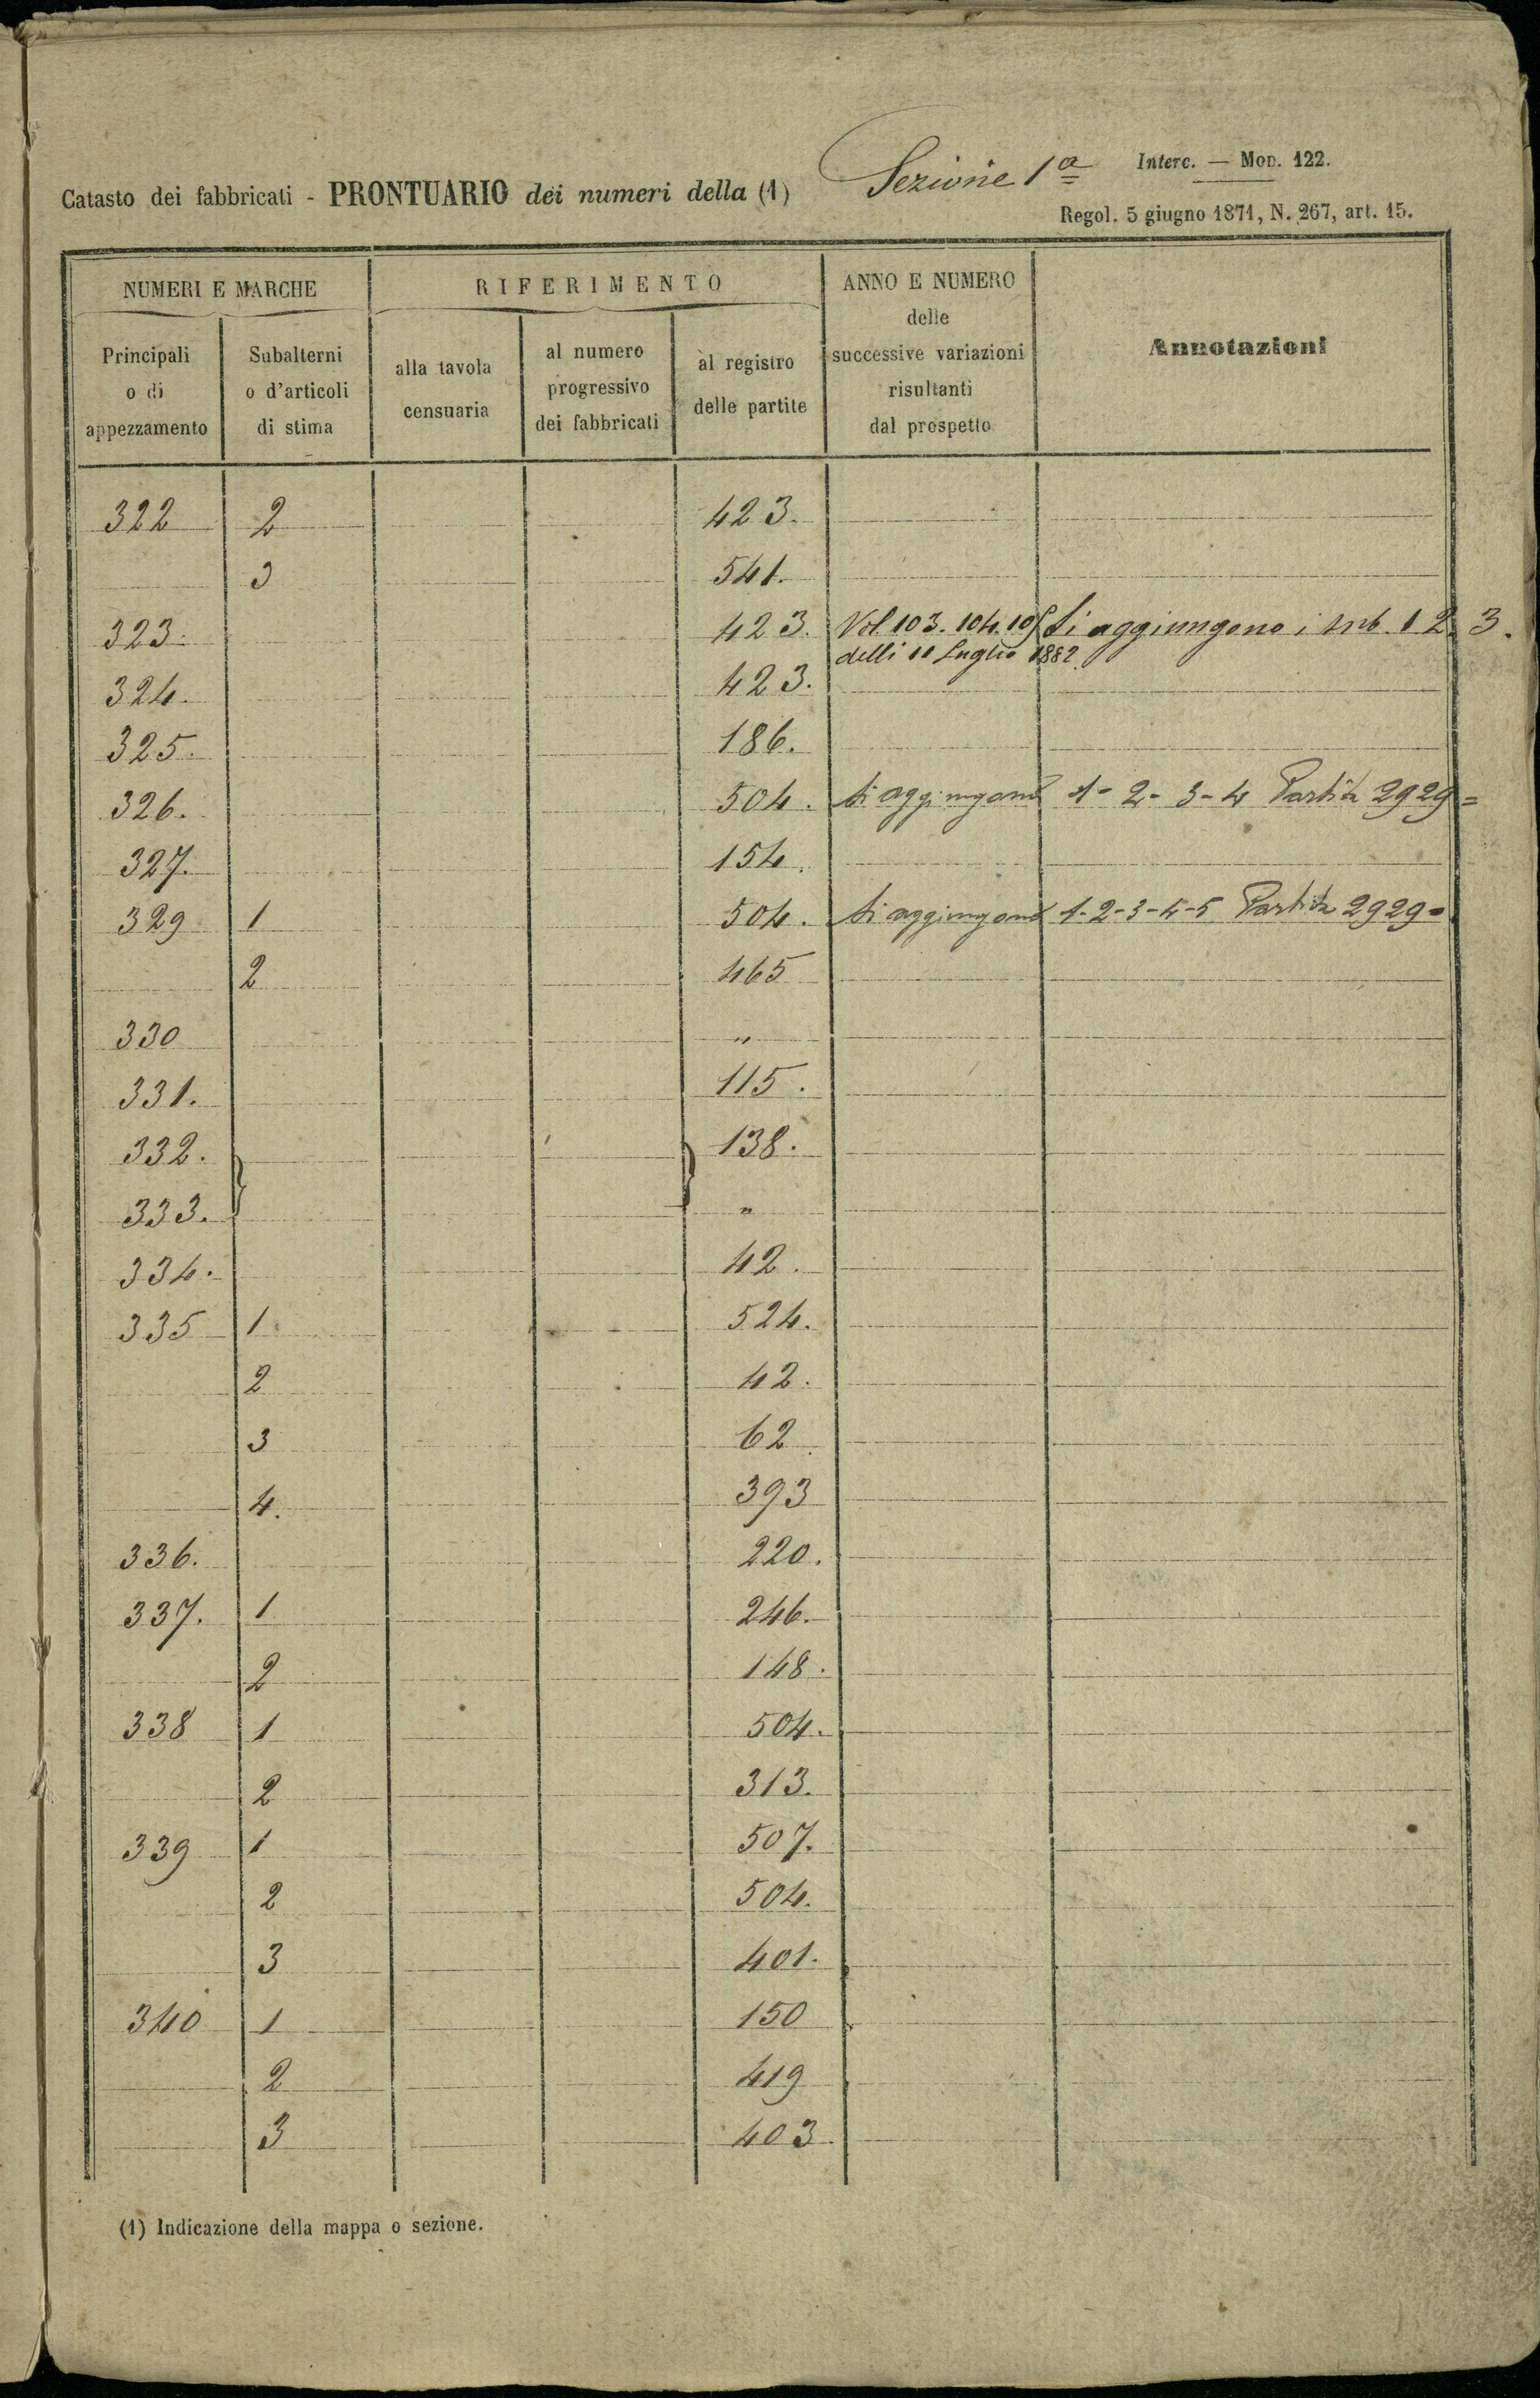 Interc. — Mod. 122.
Catasto dei fabbricati - PRONTUARIO dei numeri della (1) Sezione 1a
Regol. 5 giugno 1871, N. 267, art. 15.
NUMERI E MARCHE
RIFERIMENTO
ANNO E NUMERO
delle
successive variazioni
risultanti
dal prospetto
Annotazioni
Principali
o di
appezzamento
Subalterni
o d'articoli
di stima
alla tavola
censuaria
al numero
progressivo
dei fabbricati
al registro
delle partite
322 2 423.
3 541.
323. 423. Vol. 103. 104. 105 Si aggiungono i sub. 1 2. 3.
delli 11 Luglio 1882.
324. 423.
325. 186.
326. 504. Si aggiungono 1-2-3-4 Partita 2929=
327. 154.
329 1 504. Si aggiungono 1-2-3-4-5 Partita 2929=
2 465
330 "
331. 115.
332. } 138.
333. "
334. 42.
335 1 524.
2 42.
3 62.
4. 393
336. 220.
337. 1 246.
2 148.
338 1 504.
2 313.
339 1 507.
2 504.
3 401.
340 1 150
2 419
3 403.
(1) Indicazione della mappa o sezione.